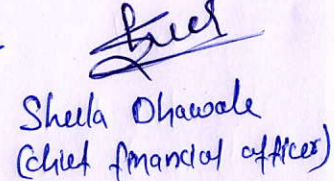 Sheela Dhawale
(chief financial officer)